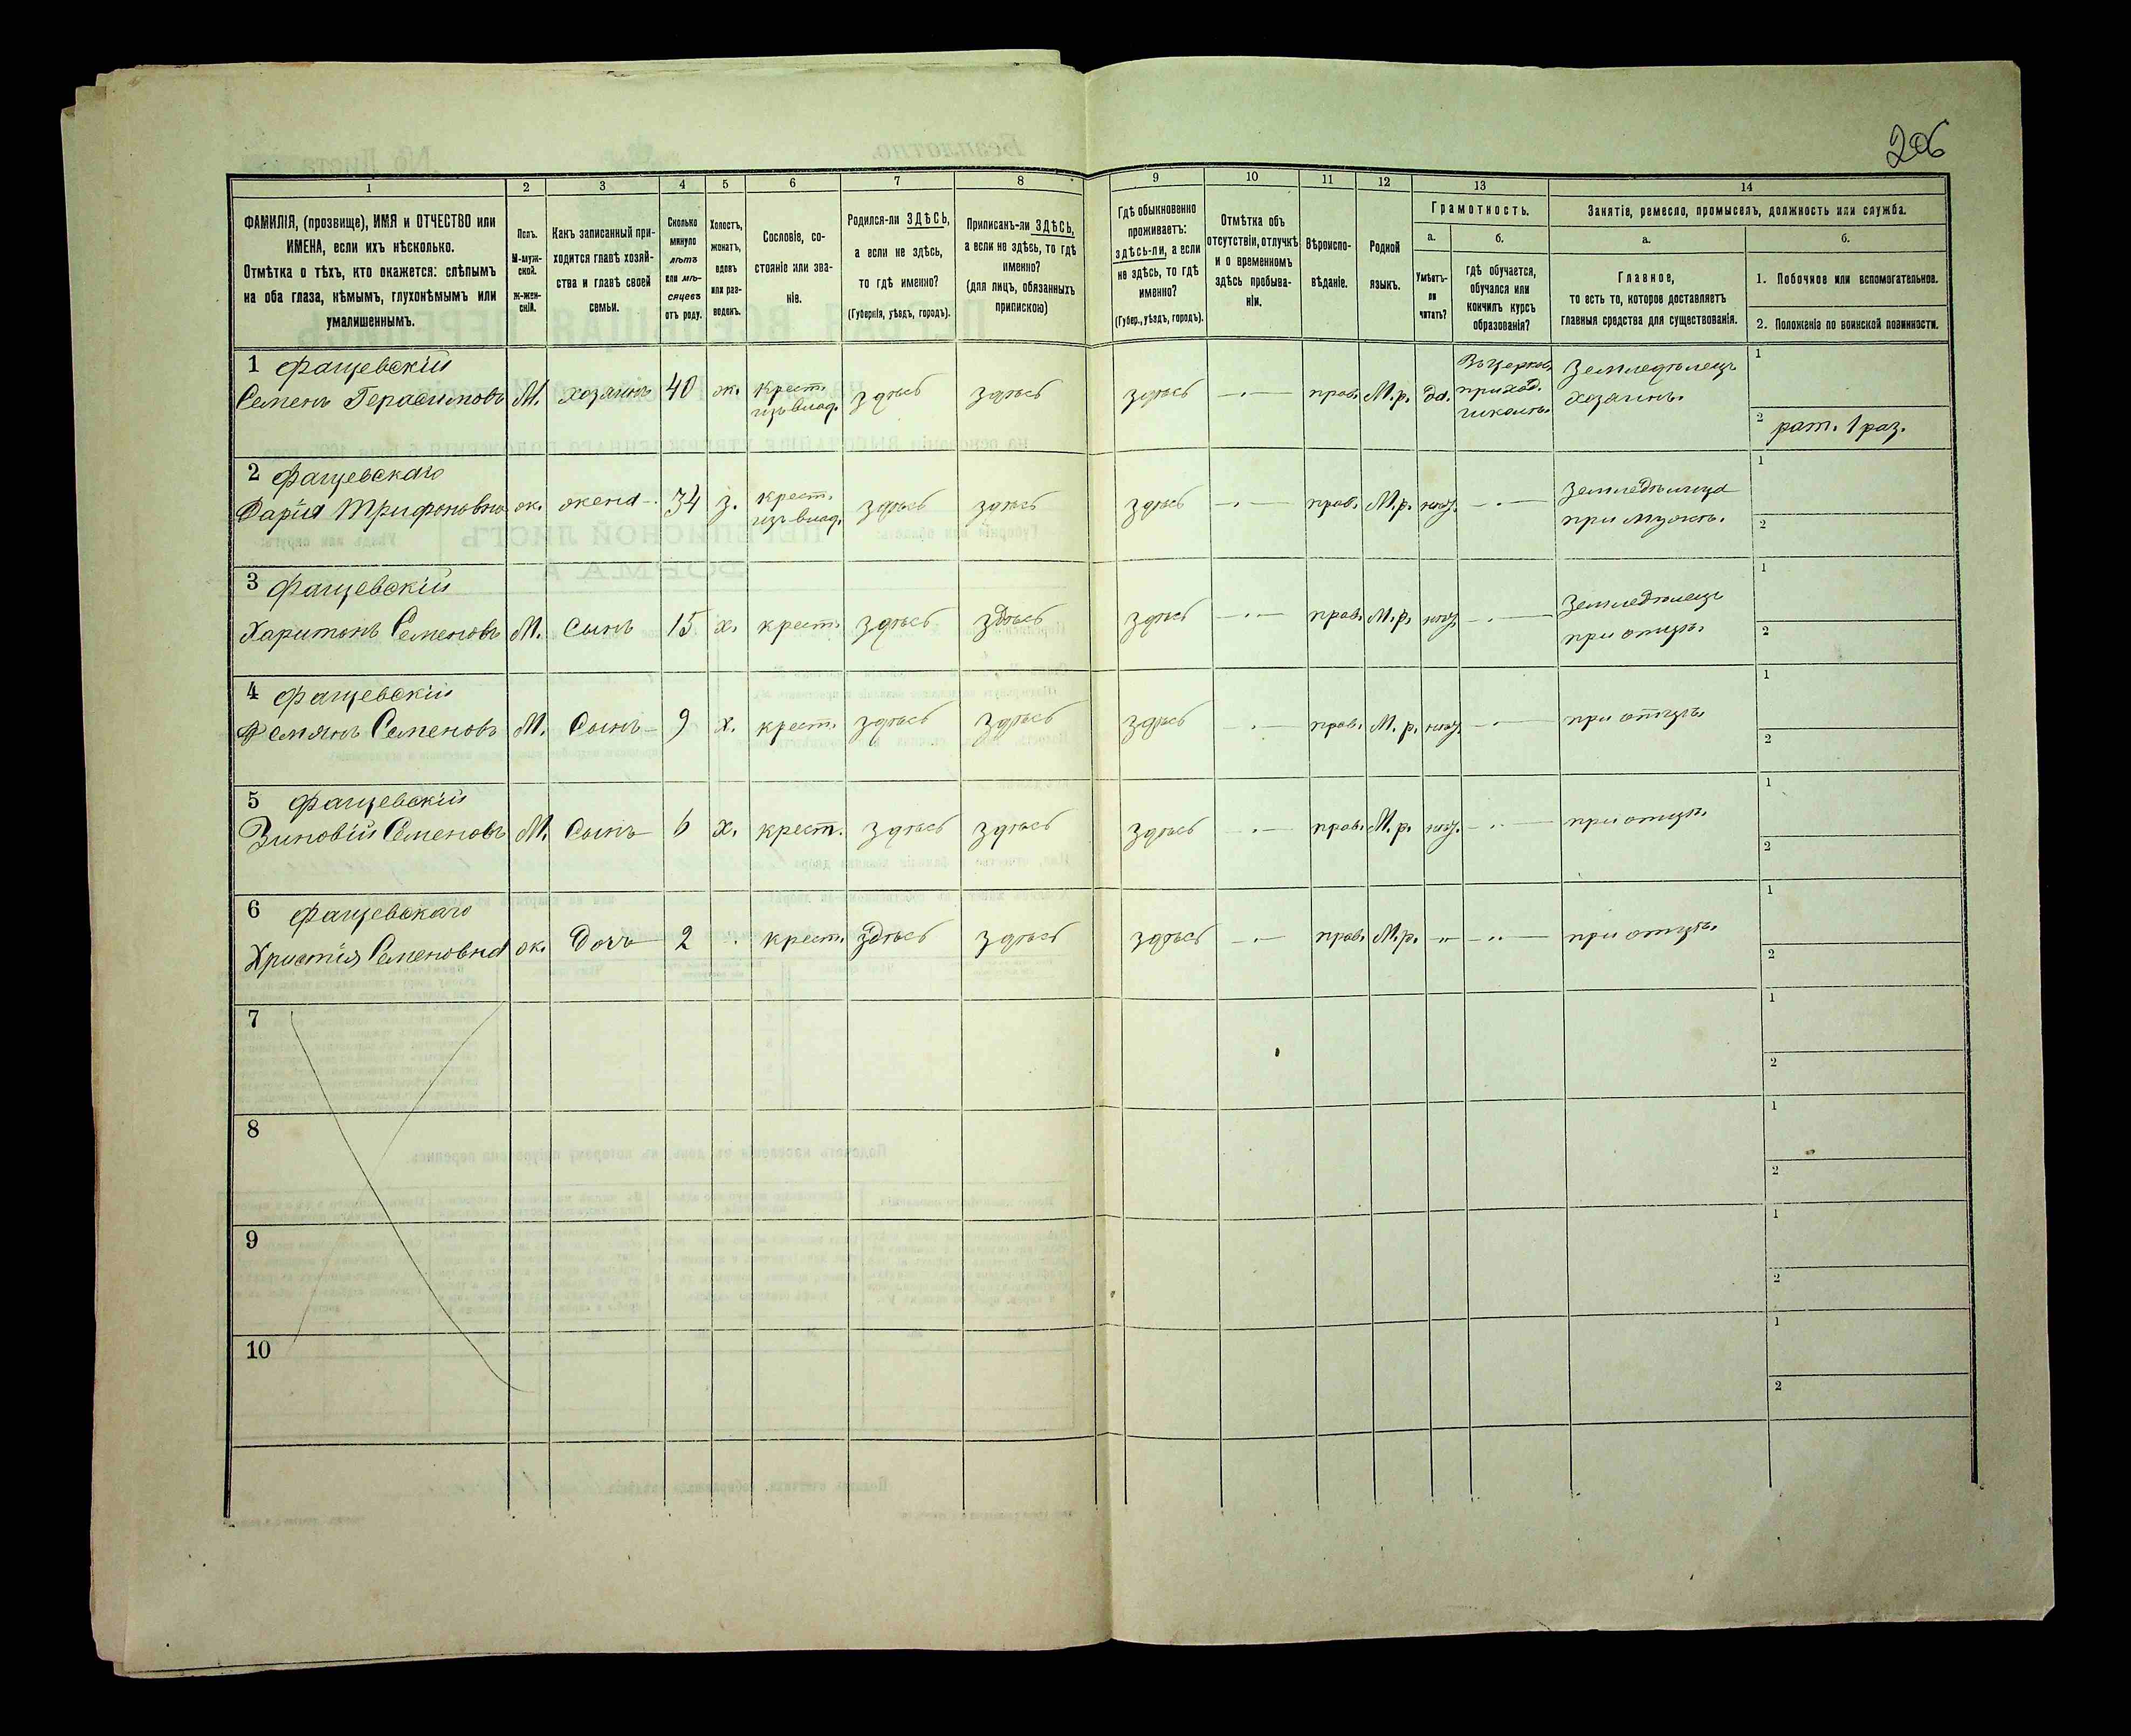 206
1 2 3 4 5 6 7 8 9 10 11 12 13 14
ФАМИЛІЯ, (прозвище), ИМЯ и ОТЧЕСТВО или
ИМЕНА, если ихъ нѣсколько.
Отмѣтка о тѣхъ, кто окажется: слѣпымъ
на оба глаза, нѣмымъ, глухонѣмымъ или
умалишеннымъ.
Полъ.
М-муж-
ской.
Ж-жен-
скій.
Какъ записанный при-
ходится главѣ хозяй-
ства и главѣ своей
семьи.
Сколько
минуло
лѣтъ
или мѣ-
сяцевъ
отъ роду.
Холостъ,
женатъ,
вдовъ
или раз-
веденъ.
Сословіе, со-
стояніе или зва-
ніе.
Родился-ли ЗДѢСЬ,
а если не здѣсь,
то гдѣ именно?
(Губернія, уѣздъ, городъ).
Приписанъ-ли ЗДѢСЬ,
а если не здѣсь, то гдѣ
именно?
(для лицъ, обязанныхъ
припискою)
Гдѣ обыкновенно
проживаетъ:
здѣсь-ли, а если
не здѣсь, то гдѣ
именно?
(Губер., уѣздъ, городъ).
Отмѣтка объ
отсутствіи, отлучкѣ
и о временномъ
здѣсь пребыва-
ніи.
Вѣроиспо-
вѣданіе.
Родной
языкъ.
Грамотность.
а.
Умѣетъ-
ли
читать?
б.
гдѣ обучается,
обучался или
кончилъ курсъ
образованія?
Занятіе, ремесло, промыселъ, должность или служба.
а.
Главное,
то есть то, которое доставляетъ
главныя средства для существованія.
б.
1. Побочное или вспомогательное.
2. Положеніе по воинской повинности.
1 Фащевскій
Семенъ Герасимовъ М. хозяинъ 40 ж. крест. изъ влад. здѣсь здѣсь здѣсь —·— прав. М.р. да. Въ церков. приход. школѣ. Земледѣлецъ хозяинъ.
1
2 рат. 1 раз.
2 Фащевскаго
Дарія Трифоновна ж. жена 34 з. крест. изъ влад. здѣсь здѣсь здѣсь —·— прав. М.р. —·— Земледѣлица при мужѣ.
1
2
3 Фащевскій
Харитонъ Семеновъ М. Сынъ 15 х. крест. здѣсь здѣсь здѣсь —·— прав. М.р. —·— Земледѣлецъ при отцѣ.
1
2
4 Фащевскій
Демянъ Семеновъ М. Сынъ 9 х. крест. здѣсь здѣсь здѣсь —·— прав. М.р. —·— при отцѣ.
1
2
5 Фащевскій
Зиновій Семеновъ М. Сынъ 6 х. крест. здѣсь здѣсь здѣсь —·— прав. М.р. —··— при отцѣ.
1
2
6 Фащевскаго
Христія Семеновна ж. Дочь 2 крест. здѣсь здѣсь здѣсь —·— прав. М.р. —··— при отцѣ.
1
2
7
1
2
8
1
2
9
1
2
10
1
2